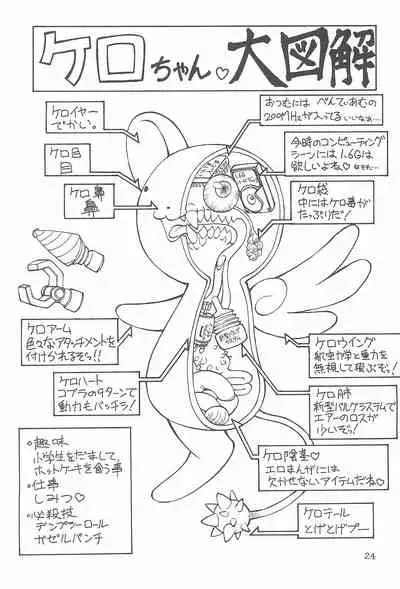 ケロちゃん♡大図解
ケロイヤー
でかい。
ケロ目
目
ケロ鼻
鼻
おつむには ぺんてぃあむの
200MHzが入ってる いいなぁ…
今時のコンピューティング
シーンには 1.6Gは
欲しいよね♡
ケロ袋
中にはケロ毒が
たっぷりだ!
ケロアーム
色々なアタッチメントを
付けかれるぞっ!!
ケロハート
コブラの9ターンで
動力もバッチラ!
ケロウイング
航空力学と重力を
無視して飛ぶぞっ!
ケロ肺
新型バルクラステムで
エアーのロスが
少いぞっ!
ケロ陰茎♡
エロまんがには
欠かせないアイテムだね♡
ケロテール
とげとげプー
*趣味
小学生をだまして、
ホットケーキを食う事
*仕事
しみつ♡
*必殺技
デンプシーロール
ガゼルパンチ
24